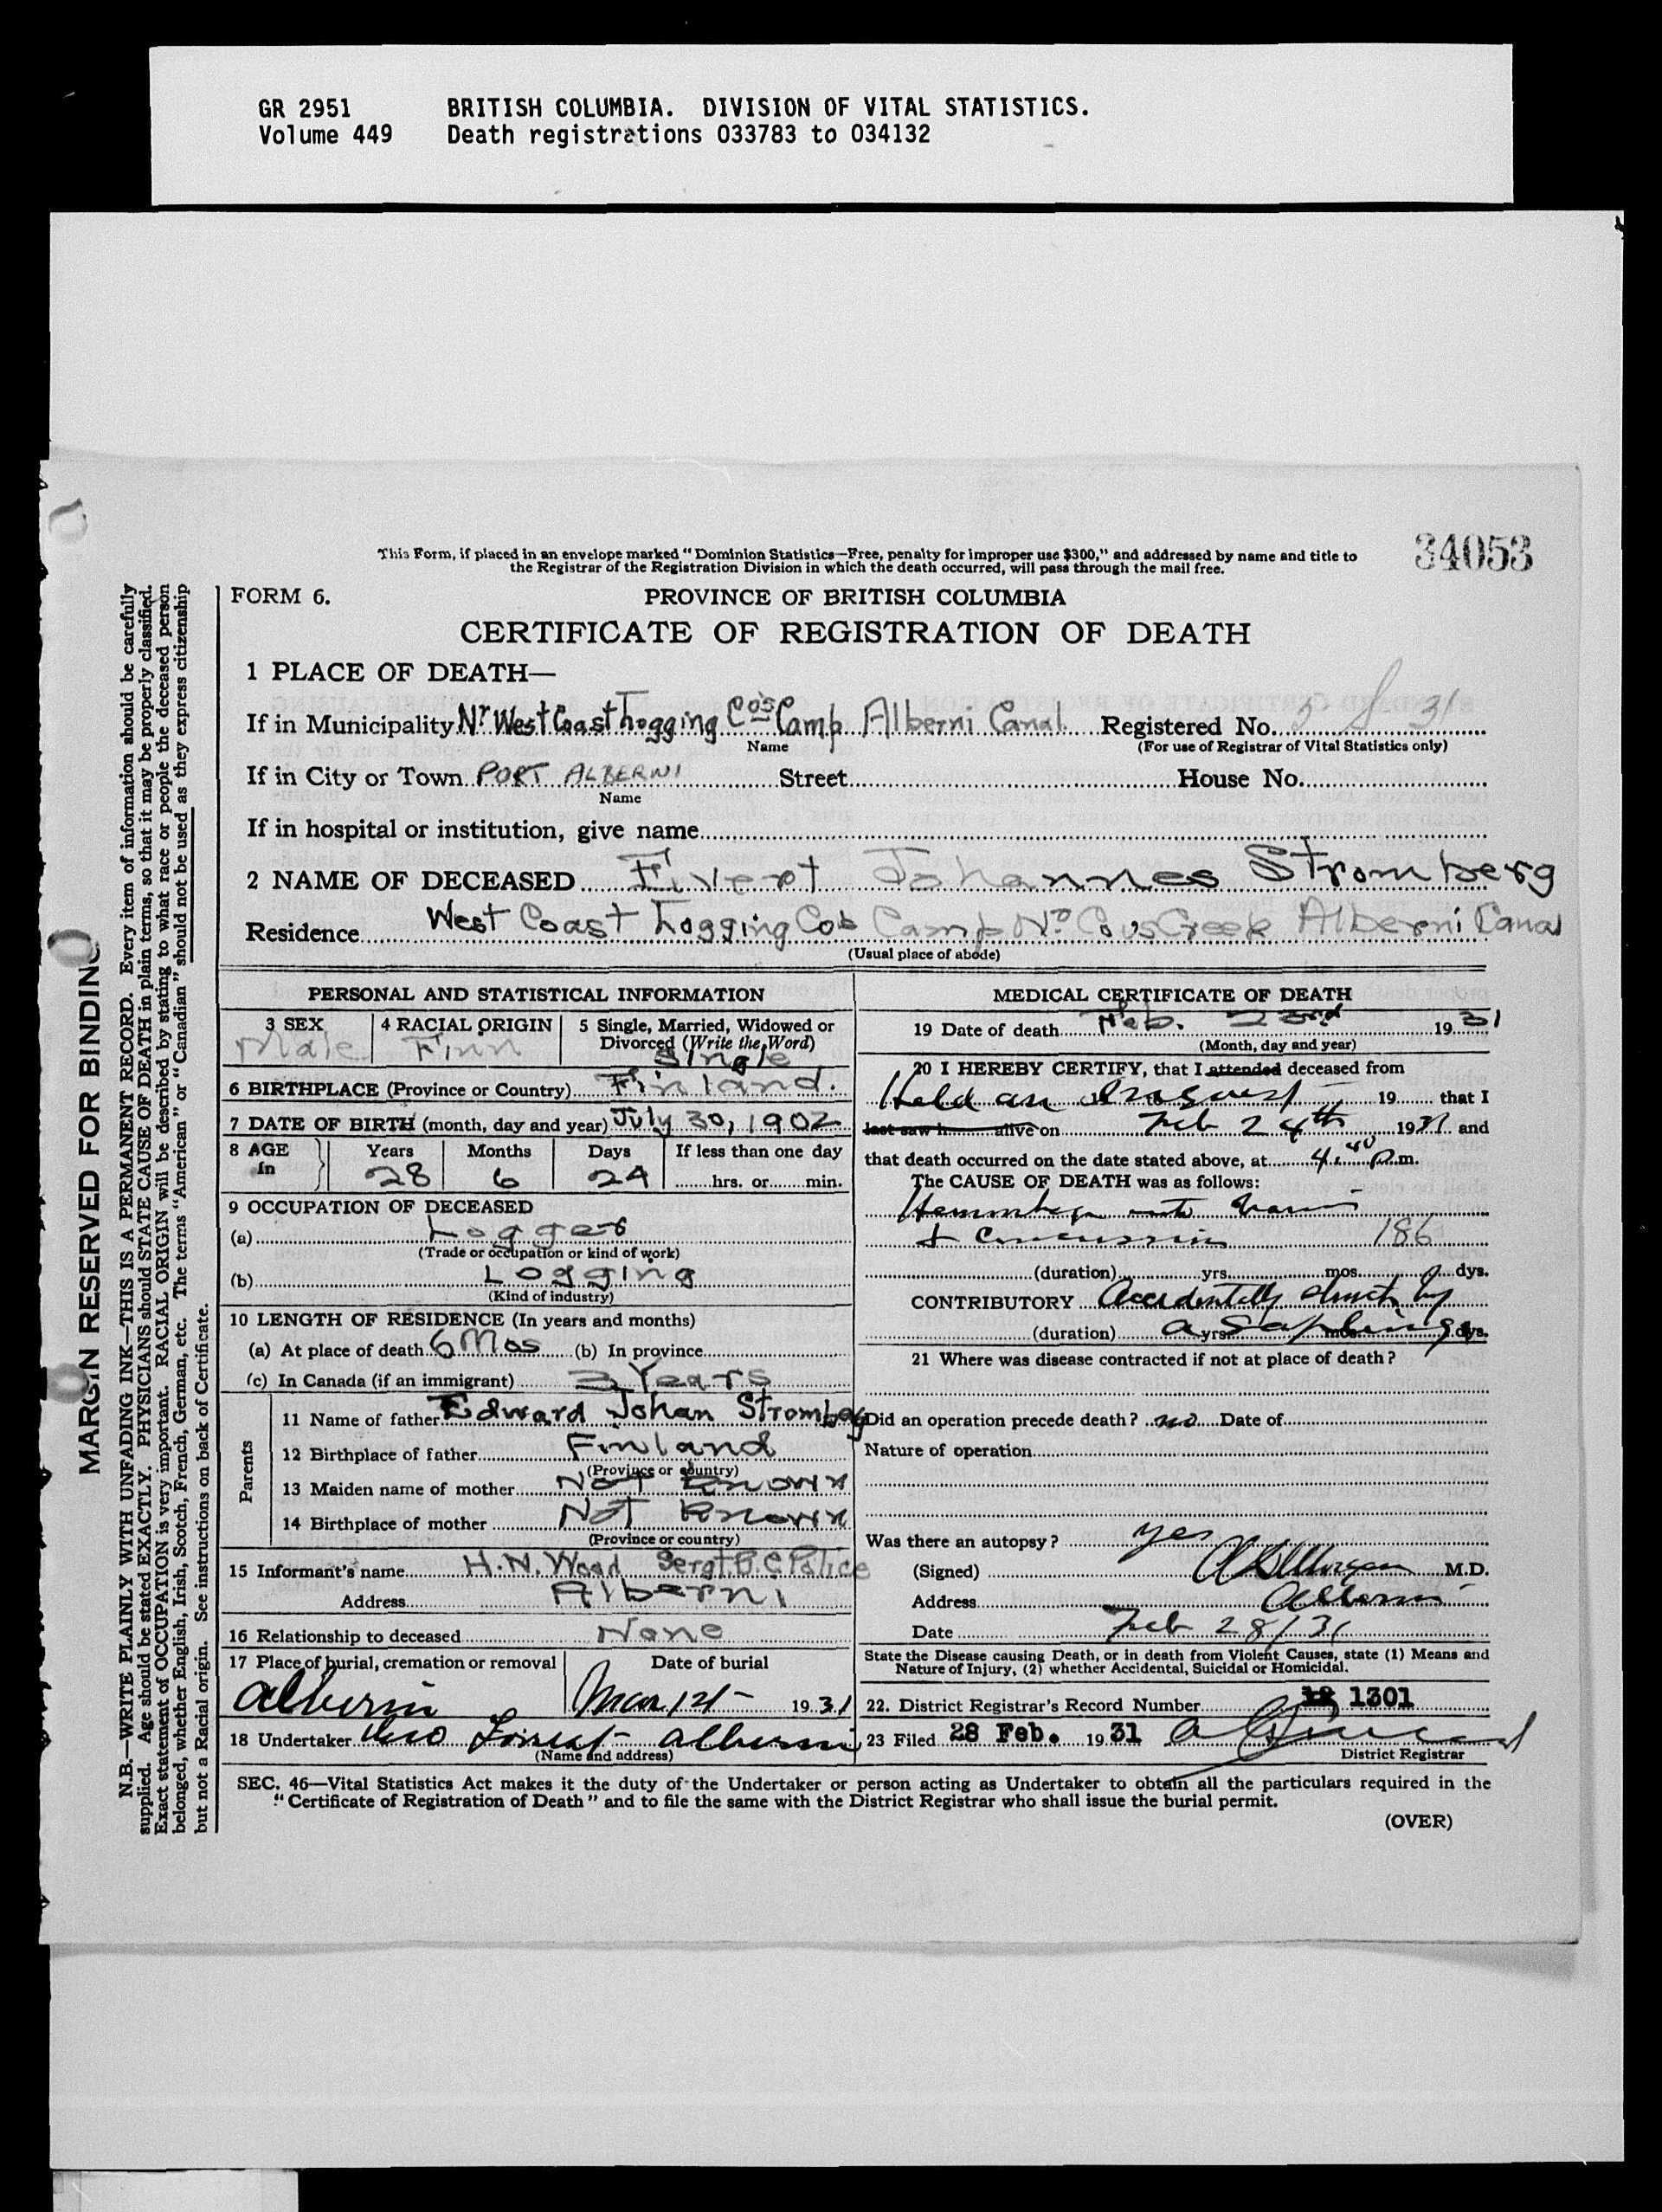 GR 2951 BRITISH COLUMBIA. DIVISION OF VITAL STATISTICS.
Volume 449 Death registrations 033783 to 034132
34053
This Form, if placed in an envelope marked "Dominion Statistics—Free, penalty for improper use $300," and addressed by name and title to
the Registrar of the Registration Division in which the death occurred, will pass through the mail free.
FORM 6. PROVINCE OF BRITISH COLUMBIA
CERTIFICATE OF REGISTRATION OF DEATH
1 PLACE OF DEATH—
If in Municipality Nr West Coast Logging Co's Camp Alberni Canal Registered No. 5 S 31
Name (For use of Registrar of Vital Statistics only)
If in City or Town PORT ALBERNI Street House No.
Name
If in hospital or institution, give name
2 NAME OF DECEASED Evert Johannes Stromberg
Residence West Coast Logging Cos Camp No. Cous Creek Alberni Canal
(Usual place of abode)
PERSONAL AND STATISTICAL INFORMATION
3 SEX 4 RACIAL ORIGIN 5 Single, Married, Widowed or
Divorced (Write the Word)
Male Finn Single
6 BIRTHPLACE (Province or Country) Finland.
7 DATE OF BIRTH (month, day and year) July 30, 1902
8 AGE Years Months Days If less than one day
in 28 6 24 hrs. or min.
9 OCCUPATION OF DECEASED
(a) Logger
(Trade or occupation or kind of work)
(b) Logging
(Kind of industry)
10 LENGTH OF RESIDENCE (In years and months)
(a) At place of death 6 Mos (b) In province
(c) In Canada (if an immigrant) 3 Years
Parents
11 Name of father Edward Johan Stromberg
12 Birthplace of father Finland
(Province or country)
13 Maiden name of mother Not Known
14 Birthplace of mother Not Known
(Province or country)
15 Informant's name H. N. Wood Sergt. B. C Police
Address Alberni
16 Relationship to deceased None
17 Place of burial, cremation or removal Date of burial
Alberni Mar 1st 1931
18 Undertaker Geo Forrest Alberni
(Name and address)
MEDICAL CERTIFICATE OF DEATH
19 Date of death Feb. 23rd 1931
(Month, day and year)
20 I HEREBY CERTIFY, that I attended deceased from
Held an Inquest to 19 that I
last saw h alive on Feb 24th 1931 and
that death occurred on the date stated above, at 4.40 P.m.
The CAUSE OF DEATH was as follows:
Hemorrhage into brain
& Concussion 186
(duration) yrs. mos. dys.
CONTRIBUTORY Accidentally struck by
(duration) a yrs. Sapling mos. dys.
21 Where was disease contracted if not at place of death?
Did an operation precede death? no Date of
Nature of operation
Was there an autopsy? yes
(Signed) M.D.
Address Alberni
Date Feb 28/31
State the Disease causing Death, or in death from Violent Causes, state (1) Means and
Nature of Injury, (2) whether Accidental, Suicidal or Homicidal.
22. District Registrar's Record Number 1301
23 Filed 28 Feb. 1931
District Registrar
SEC. 46—Vital Statistics Act makes it the duty of the Undertaker or person acting as Undertaker to obtain all the particulars required in the
"Certificate of Registration of Death" and to file the same with the District Registrar who shall issue the burial permit.
(OVER)
MARGIN RESERVED FOR BINDING
N.B.—WRITE PLAINLY WITH UNFADING INK—THIS IS A PERMANENT RECORD. Every item of information should be carefully
supplied. Age should be stated EXACTLY. PHYSICIANS should STATE CAUSE OF DEATH in plain terms, so that it may be properly classified.
Exact statement of OCCUPATION is very important. RACIAL ORIGIN will be described by stating to what race or people the deceased person
belonged, whether English, Irish, Scotch, French, German, etc. The terms "American" or "Canadian" should not be used as they express citizenship
but not a Racial origin. See instructions on back of Certificate.